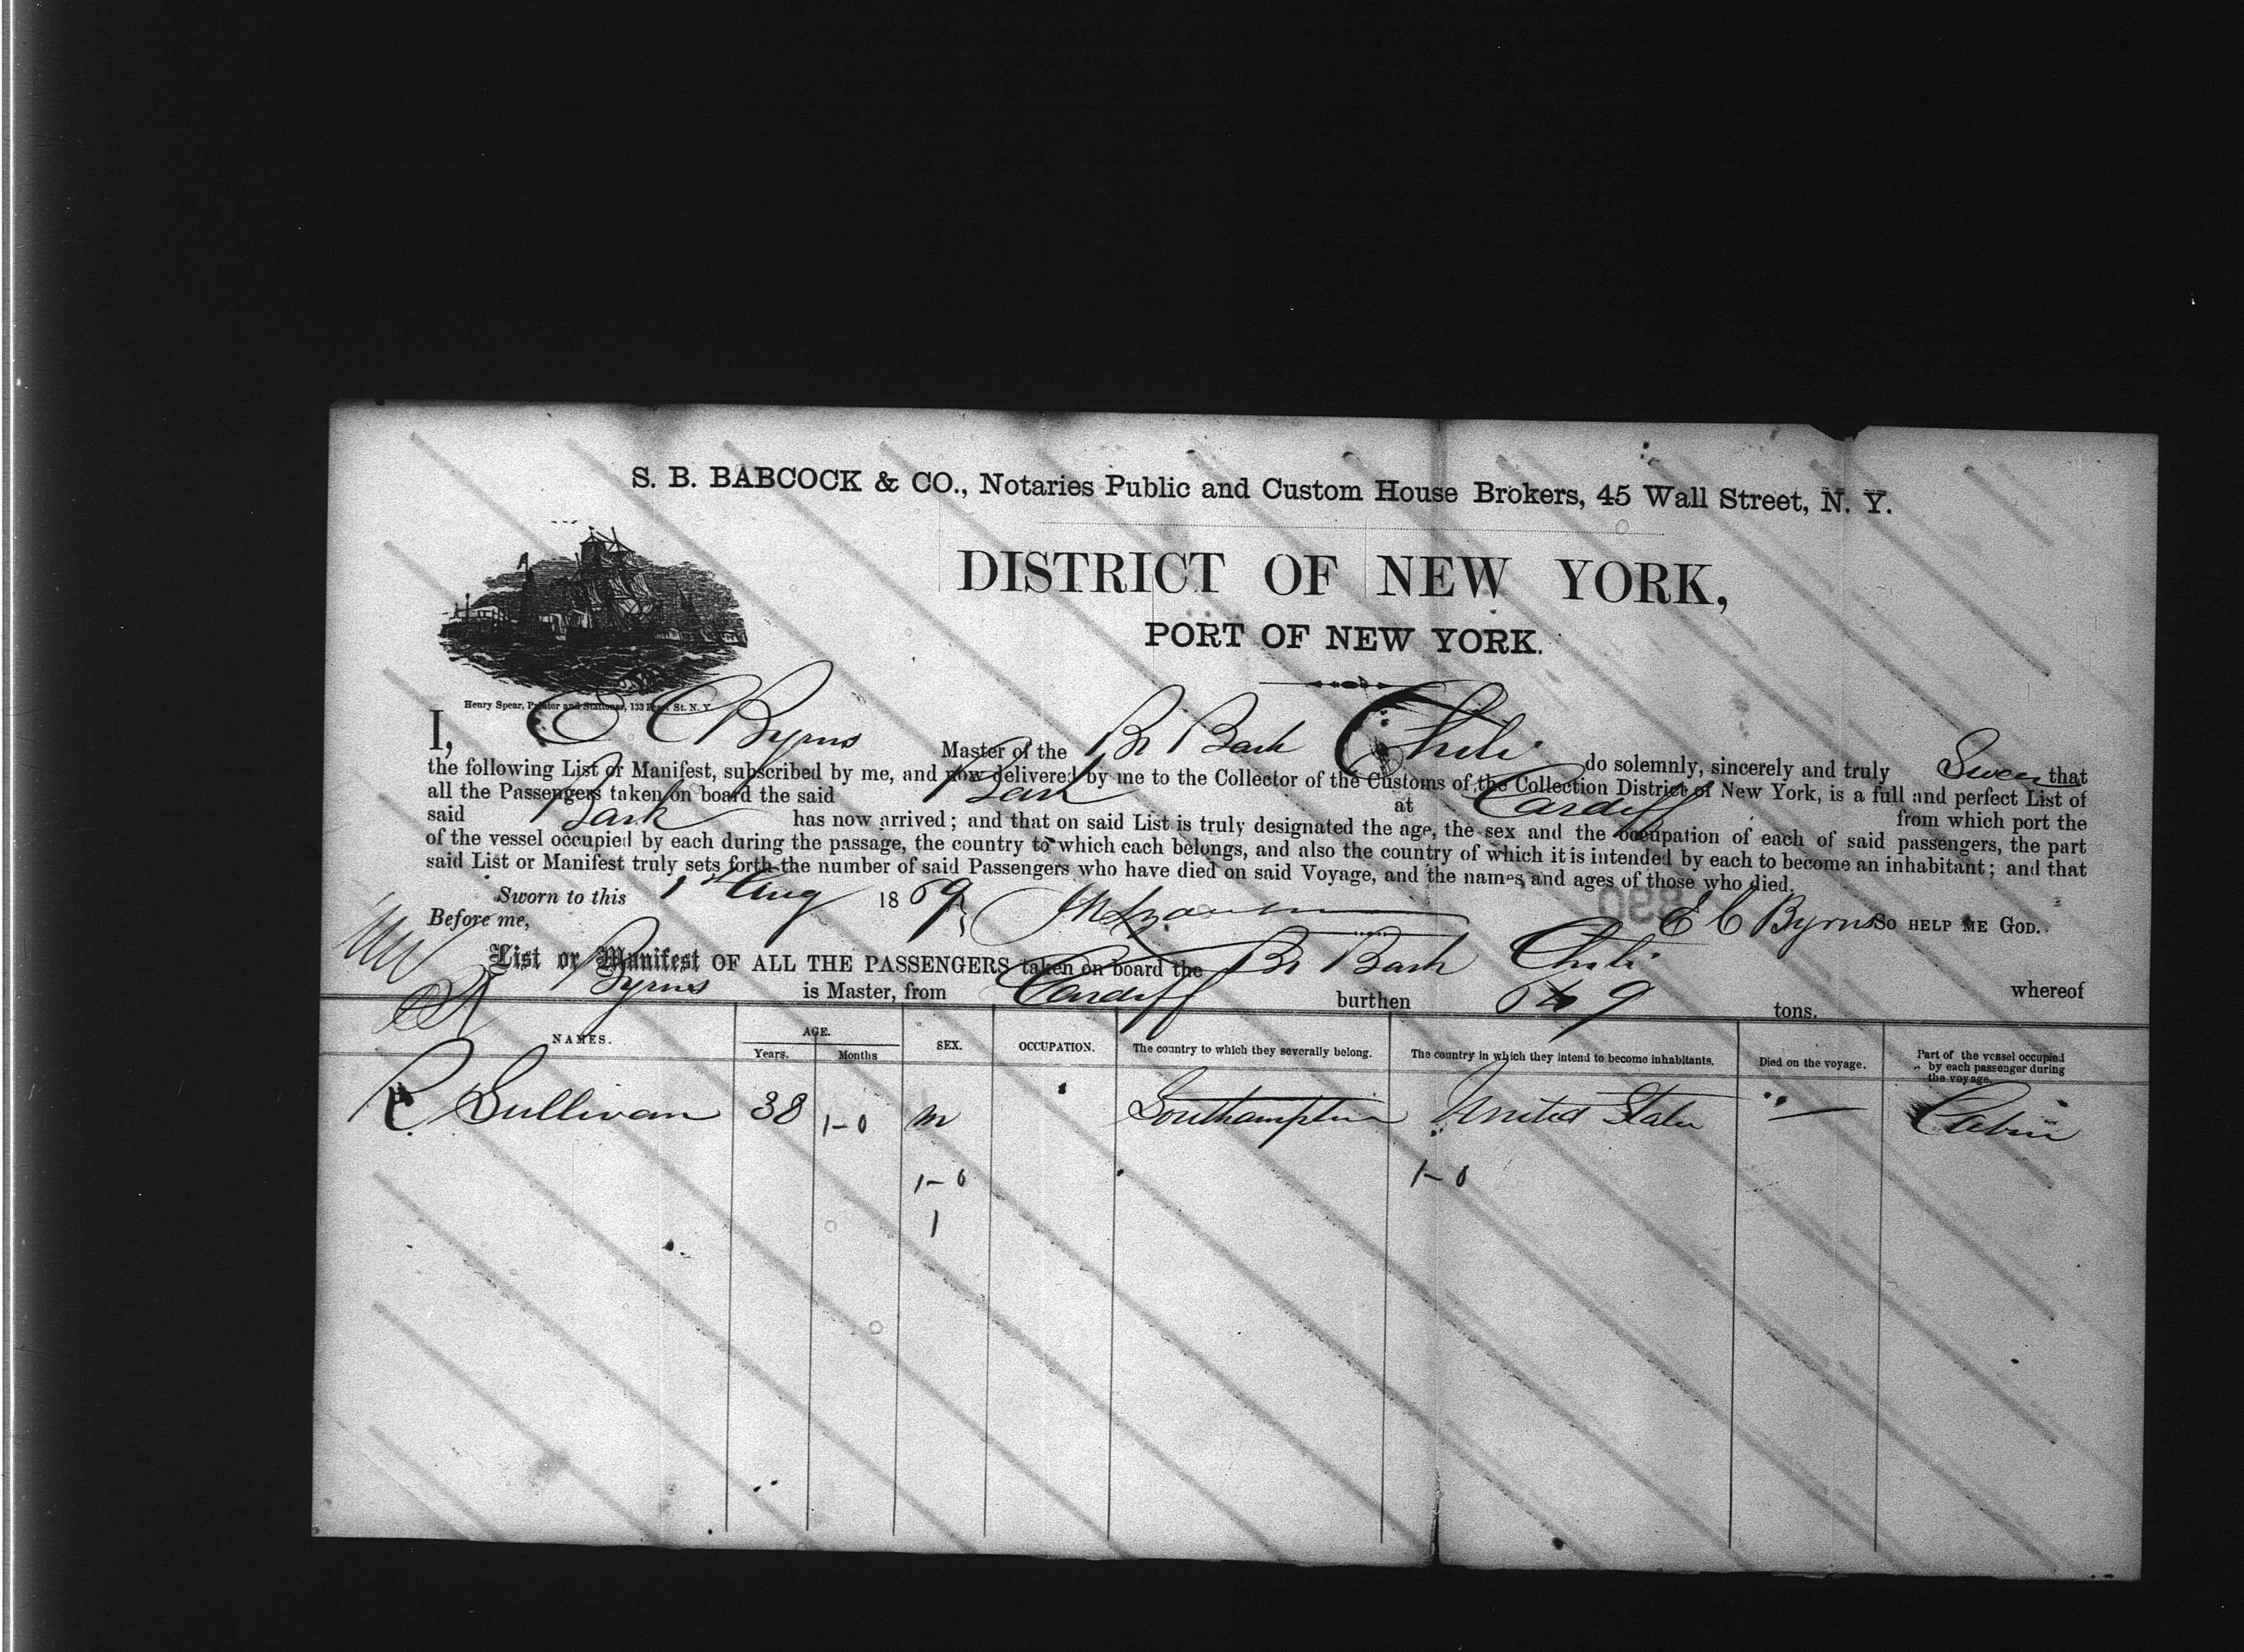 S. B. BABCOCK & CO., Notaries Public and Custom House Brokers, 45 Wall Street, N. Y.
DISTRICT OF NEW YORK,
PORT OF NEW YORK.
Henry Spear, Printer and Stationer, 133 Pearl St. N. Y.
I, E C Byrns Master of the Br Bark Chili do solemnly, sincerely and truly Swear that
the following List or Manifest, subscribed by me, and now delivered by me to the Collector of the Customs of the Collection District of New York, is a full and perfect List of
all the Passengers taken on board the said Bark at Cardiff from which port the
said Bark has now arrived; and that on said List is truly designated the age, the sex and the occupation of each of said passengers, the part
of the vessel occupied by each during the passage, the country to which each belongs, and also the country of which it is intended by each to become an inhabitant; and that
said List or Manifest truly sets forth the number of said Passengers who have died on said Voyage, and the names and ages of those who died.
Sworn to this 1st Aug 1869 E C Byrns So HELP ME GOD.
Before me,
090
List or Manifest OF ALL THE PASSENGERS taken on board the Br Bark Chili whereof
Byrns is Master, from Cardiff burthen tons.
NAMES. AGE. SEX. OCCUPATION. The country to which they severally belong. The country in which they intend to become inhabitants. Died on the voyage. Part of the vessel occupied by each passenger during the voyage.
Years. Months
R Sullivan 38 1-0 m Southampton United States " — Cabin
1-0 1-0
1